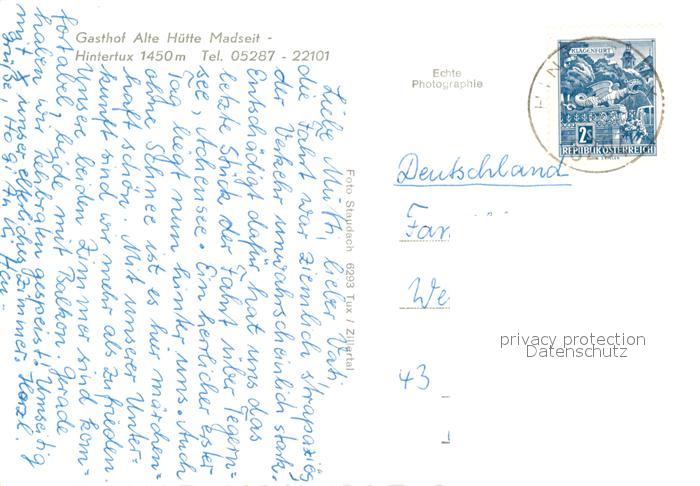 Gasthof Alte Hütte Madseit -
Hintertux 1450 m Tel. 05287 - 22101
Echte
Photographie
KLAGENFURT
2 S
REPUBLIK ÖSTERREICH
Liebe Mutti, lieber Vati,
die Fahrt war ziemlich strapaziös
der Verkehr unwahrscheinlich stark.
Entschädigt dafür hat uns das
letzte Stück der Fahrt über Tegern=
see, Achensee. Ein herrlicher erster
Tag liegt nun hinter uns. Auch
ohne Schnee ist es hier märchen=
haft schön. Mit unserer Unter=
kunft sind wir mehr als zufrieden.
Unsere beiden Zimmer sind kom=
fortabel, beide mit Balkon. Gerade
haben wir Rehbraten gespeist. Umseitig
mit X unser elterliches Zimmer. Herzl.
Grüße,
Foto Staudach 6293 Tux / Zillertal
Deutschland
Fam
We
43
privacy protection
Datenschutz